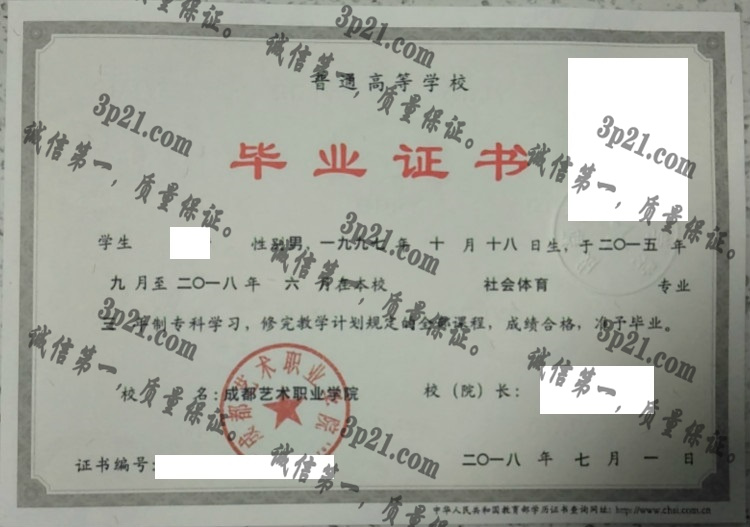 普通高等学校
毕业证书
学生 性别男,一九九七年 十 月 十八 日生,于二〇一五 年
九 月至 二〇一八 年 六 月在本校 社会体育 专业
三 年制专科学习,修完教学计划规定的全部课程,成绩合格,准予毕业。
校 名:成都艺术职业学院 校(院)长:
成都艺术职业学院
证书编号: 二〇一八 年 七 月 一 日
中华人民共和国教育部学历证书查询网址: http://www.chsi.com.cn
3p21.com
诚信第一,质量保证。
3p21.com
诚信第一,质量保证。
3p21.com
诚信第一,质量保证。
3p21.com
诚信第一,质量保证。
3p21.com
诚信第一,质量保证。
3p21.com
诚信第一,质量保证。
3p21.com
诚信第一,质量保证。
3p21.com
诚信第一,质量保证。